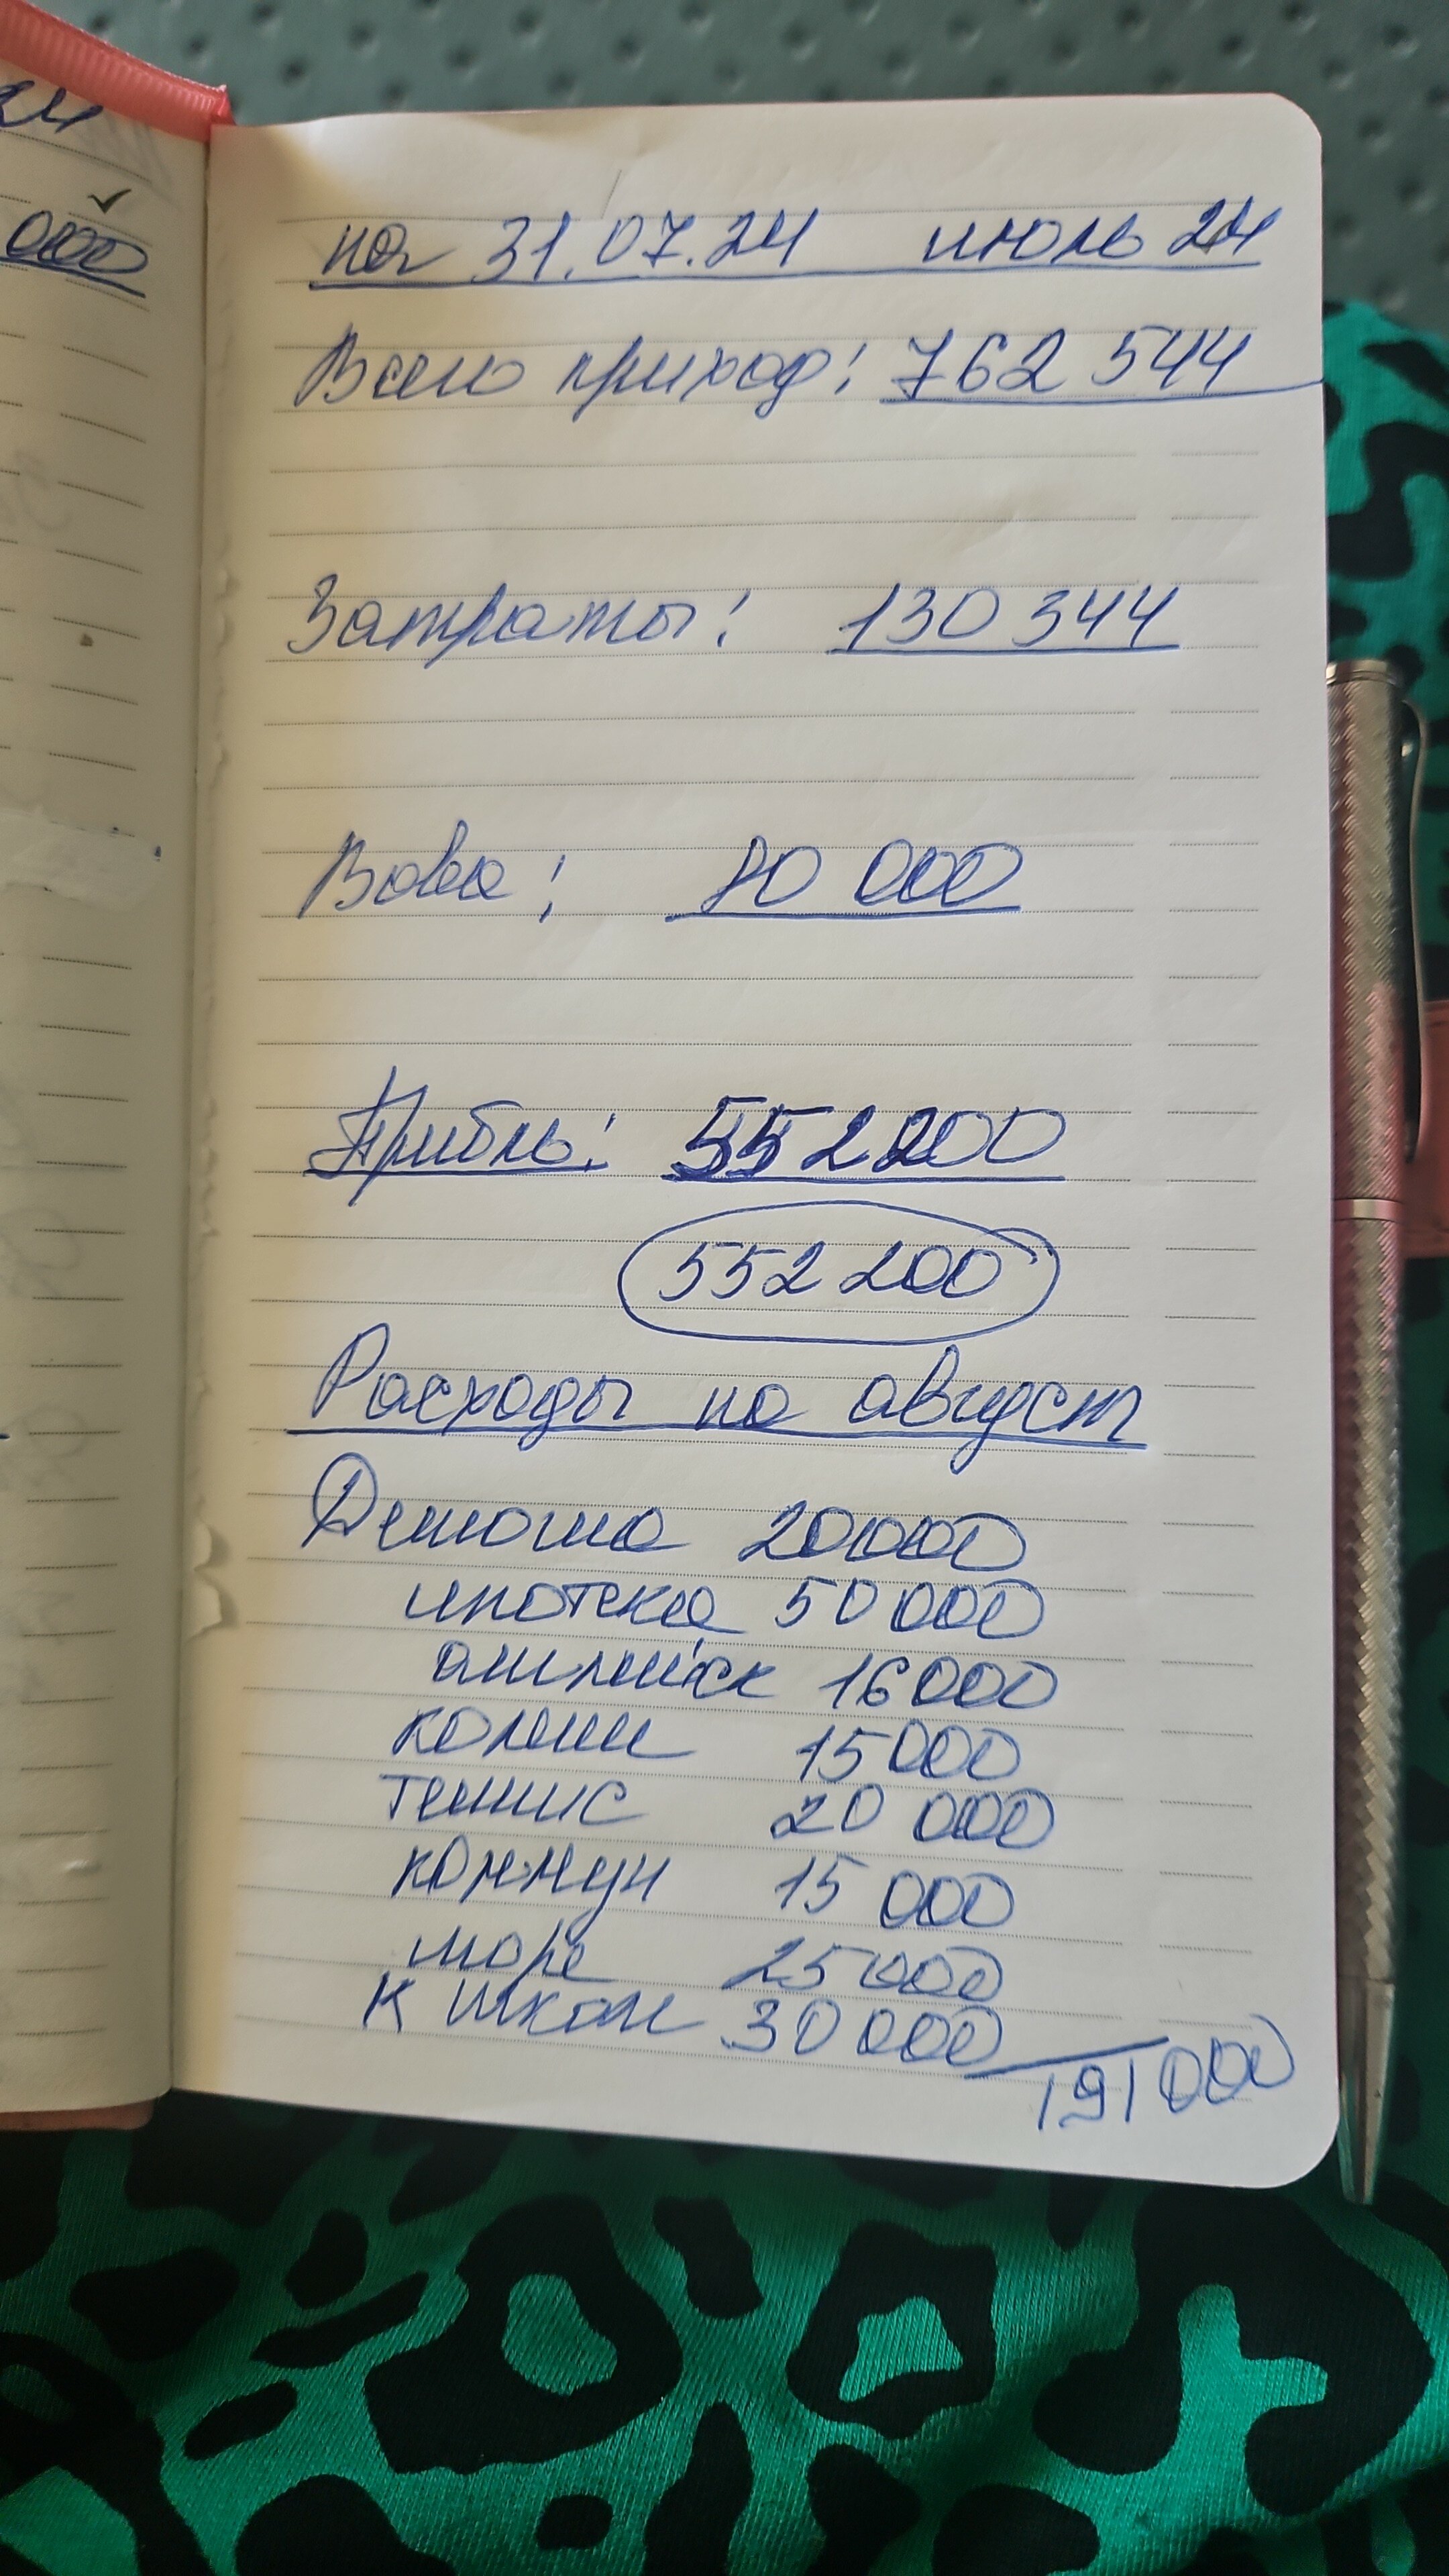 24
000
на 31.07.24 июль 24
Всего приход: 762 544
Затраты: 130 344
Вова: 80 000
Прибль: 552200
552 200
Расходы на август
20000
ипотека 50 000
английск 16000
15000
теннис 20 000
коммун 15 000
море 25000
к школе 30 000
191000